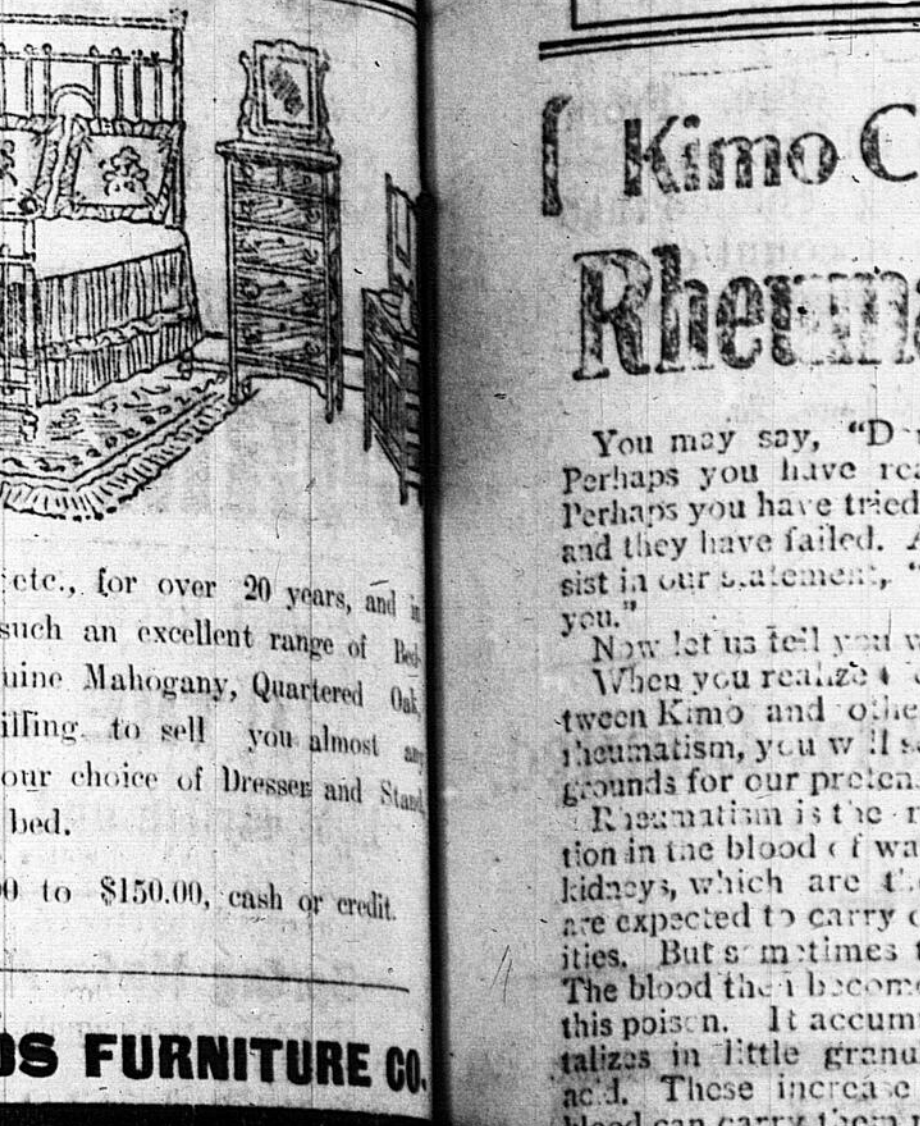 etc., for over 20 years, and in
such an excellent range of Bed-
uine Mahogany, Quartered Oak,
illing to sell you almost any
our choice of Dresser and Stand,
bed.
00 to $150.00, cash or credit.
DS FURNITURE CO.
Kimo C
Rheum
You may say, “D
Perhaps you have rea
Perhaps you have tried
and they have failed. A
sist in our statement, “
you.”
Now let us tell you w
When you realize
tween Kimo and othe
rheumatism, you will s
grounds for our preten
Rheumatism is the r
tion in the blood of wa
kidneys, which are th
are expected to carry o
ities. But sometimes t
The blood then becom
this poison. It accum
talizes in little granu
acid. These increase
blood can carry them